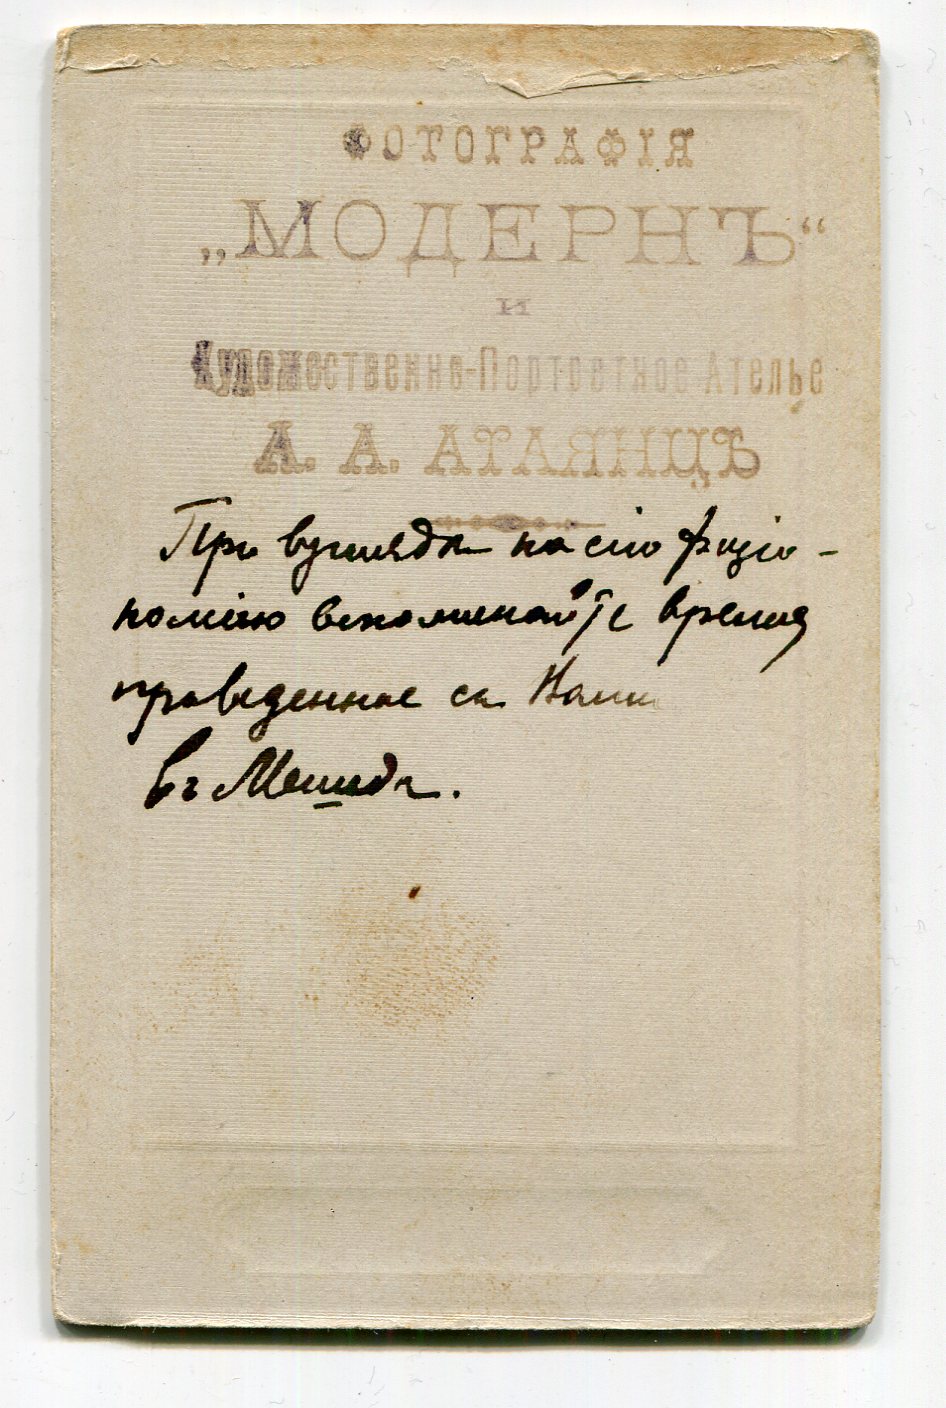 ФОТОГРАФІЯ
„МОДЕРНЪ“
И
Художественно-Портретное Ателье
А. А. АТАЯНЦЪ
При взглядѣ на сію физіо-
номію вспоминайте время
проведенное съ Нами
въ Мешедѣ.